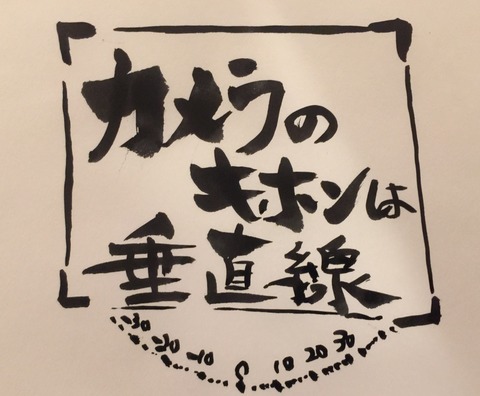 カメラの
キホンは
垂直線
-30 -20 -10 0 10 20 30